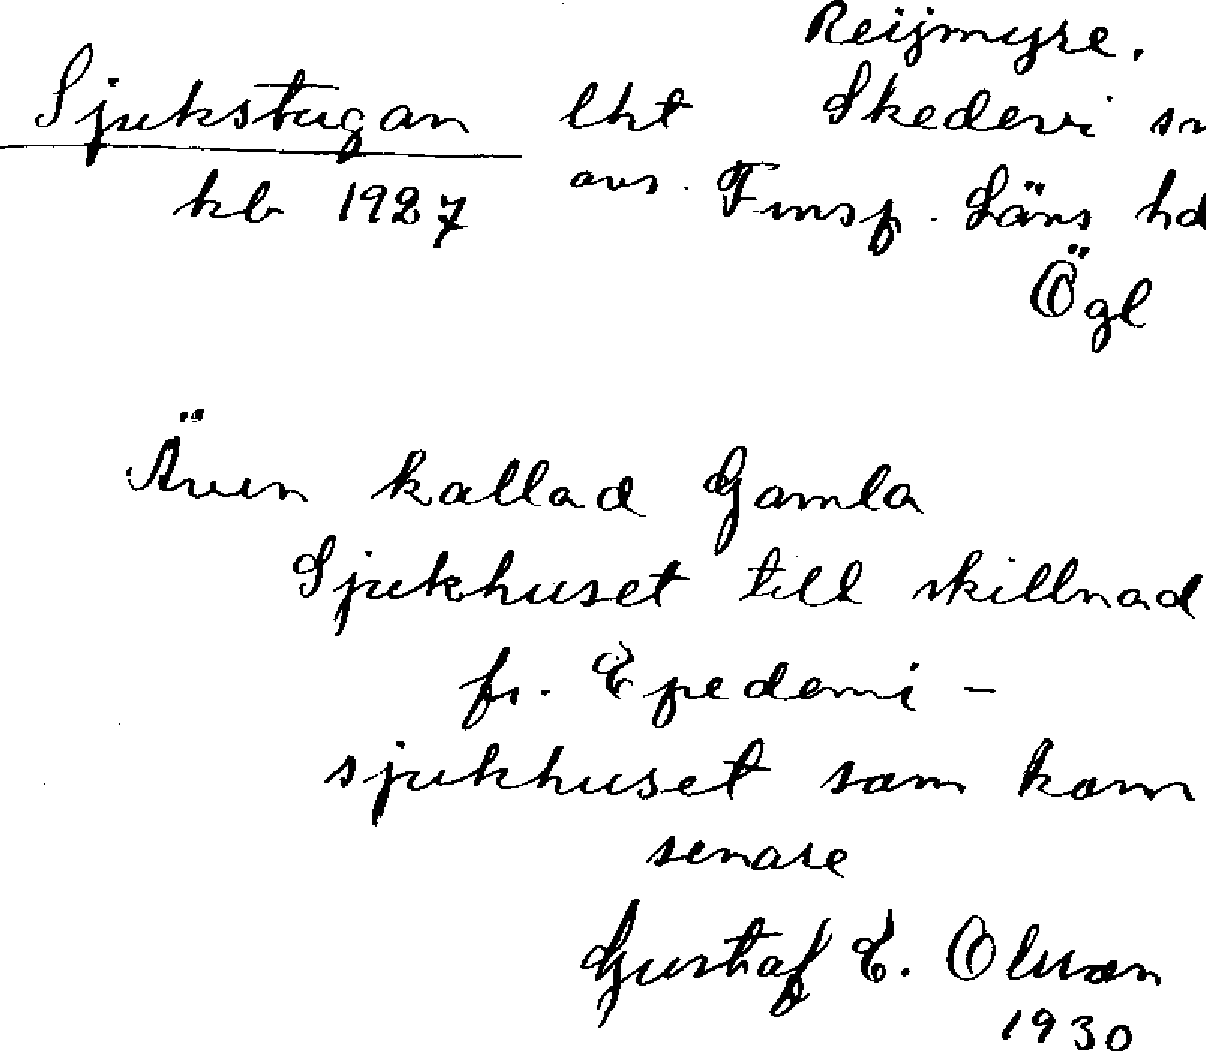 Reijmyre.
Sjukstugan lht Skedevi sn
kb 1927 avs. Finsp. Läns hd
Ögl
Även kallad Gamla
Sjukhuset till skillnad
fr. Epedemi-
sjukhuset som kom
senare
Gustaf E. Olsson
1930